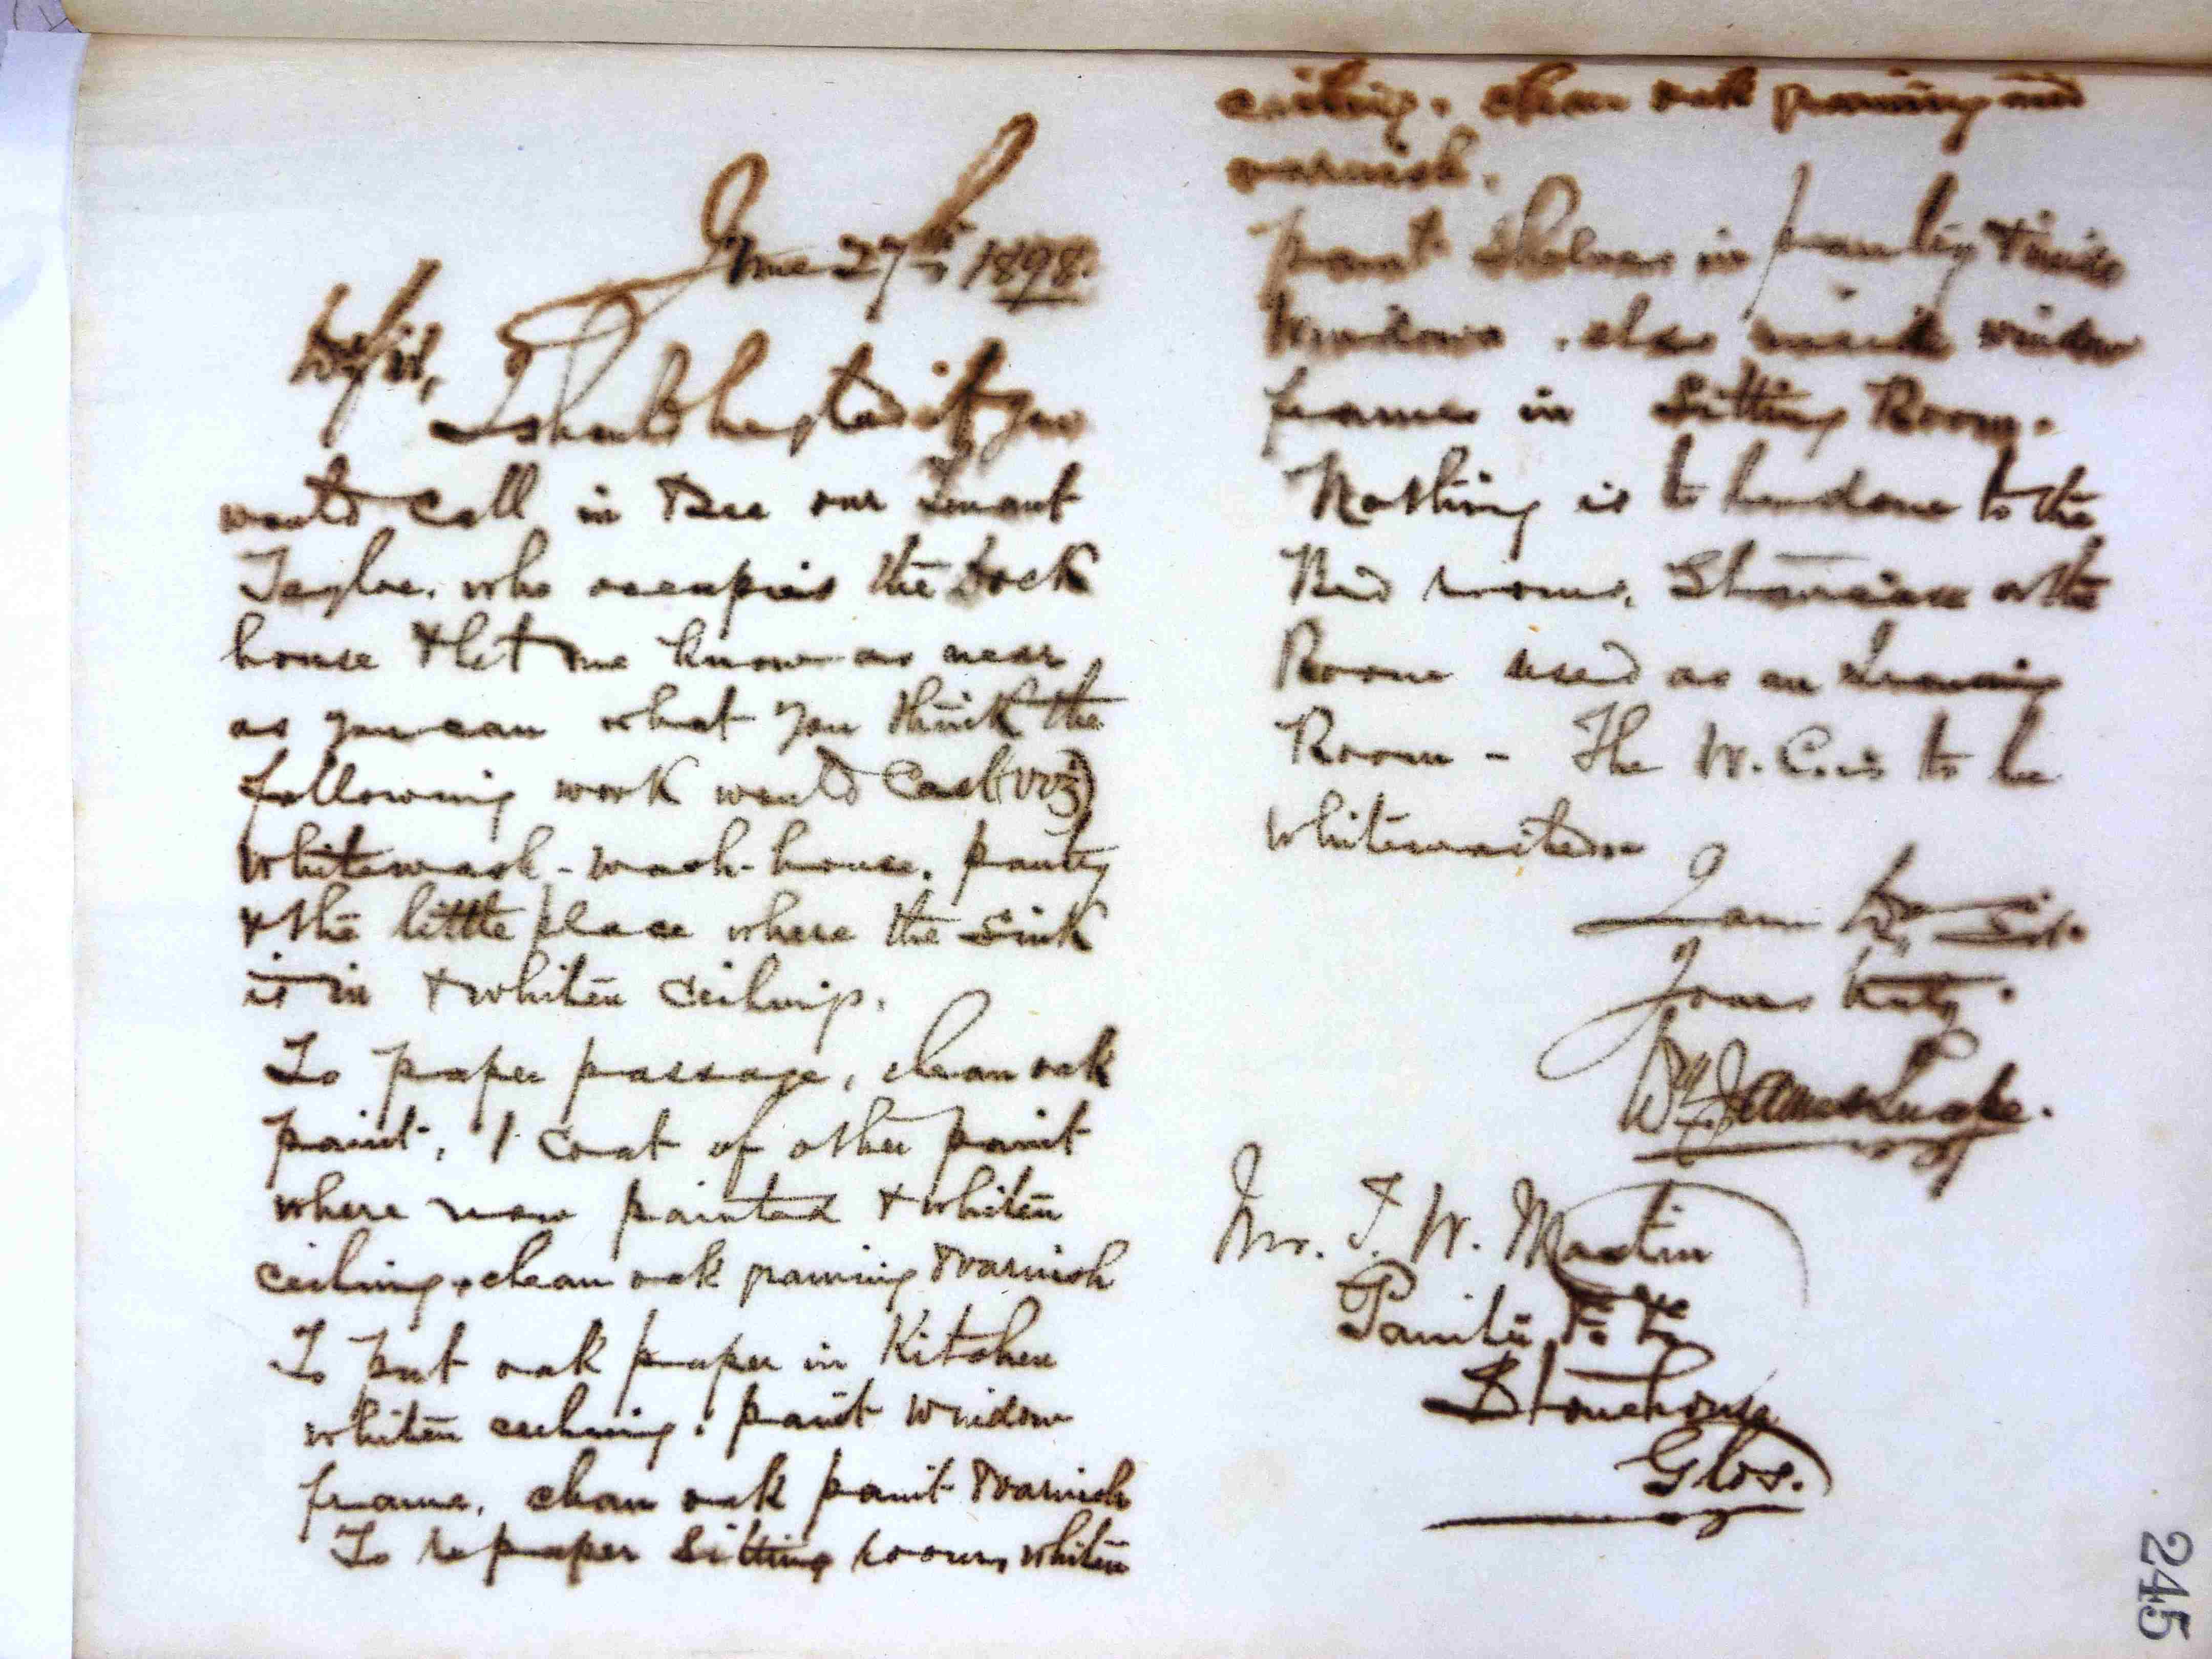 June 27th 1898.
Dr Sir,
I should be glad if you
would call in & see our tenant
who occupies the Dock
house & let me know as near
as you can what you think the
following work would cost (viz)
Whitewash - wash-house, pantry
& the little place where the sink
is in & whiten ceiling.
To paper passage, clean oak
paint, 1 coat of other paint
where now painted & whiten
ceiling, clean oak graining & varnish
To put oak paper in Kitchen
whiten ceiling, paint window
frame, clean oak paint & varnish
To repaper sitting room, whiten
ceiling, clean oak graining and
varnish.
paint shelves in pantry &
Windows, also inside window
frames in Sitting Room.
Nothing is to be done to the
Bed rooms, Staircase or the
Room used as a Drawing
Room - The W.C. is to be
I am Dr Sir.
Yours truly.
Wm James
Mr. F. W. Martin
Painter &c &c
Stonehouse
Glos.
245